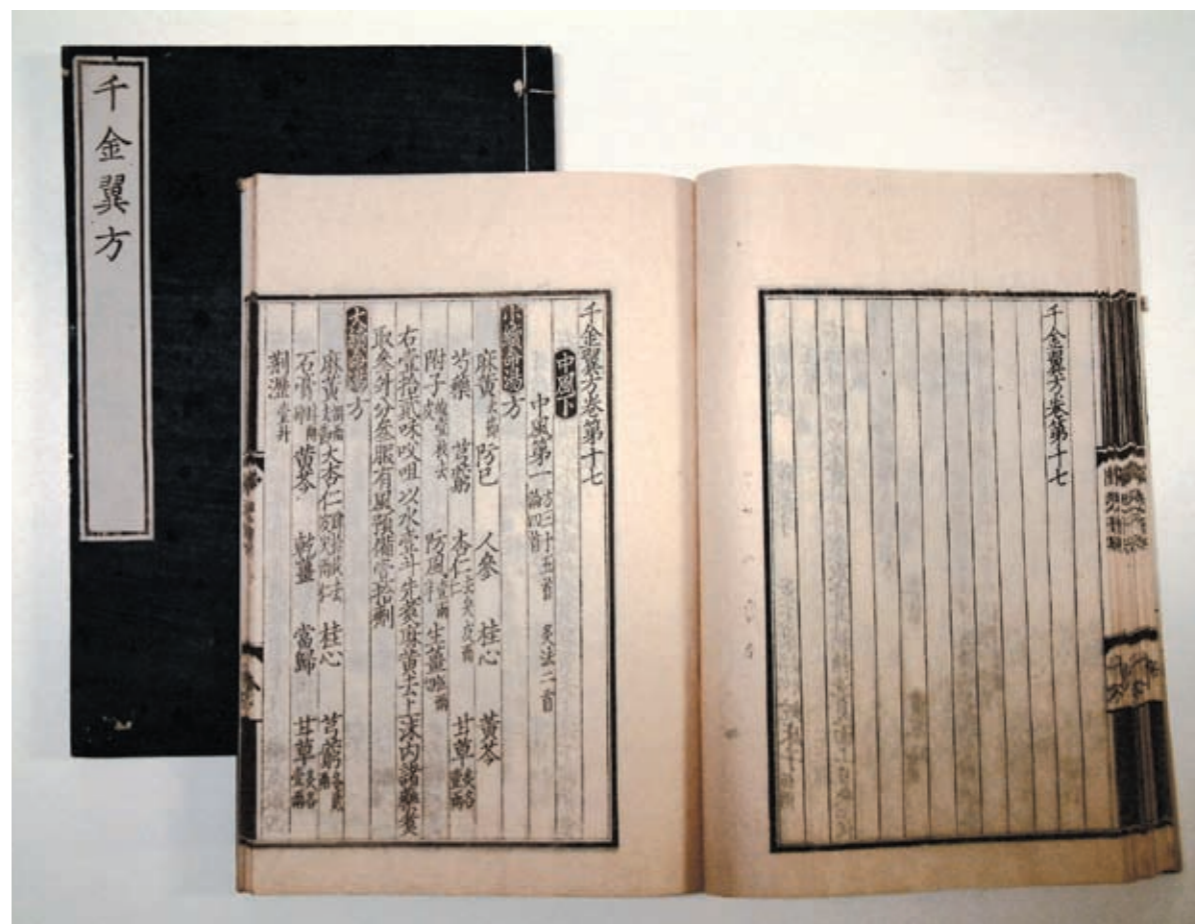 千金翼方
千金翼方卷第十七
千金翼方卷第十七
中風下
中風第一 方二十五首 論四首 灸法二首
小續命湯方
麻黃去節 防已 人參 桂心 黃芩
芍藥 芎藭 杏仁去尖皮兩仁 甘草炙各壹兩
附子 防風壹兩半 生薑伍兩
右壹拾貳味㕮咀以水壹斗先煑麻黃去上沫內諸藥煑
取叁升分叁服有風預備壹拾劑
大續命湯方
麻黃 大杏仁 桂心 芎藭各貳兩
石膏 黃芩 乾薑 當歸 甘草炙各壹兩
荆瀝壹升